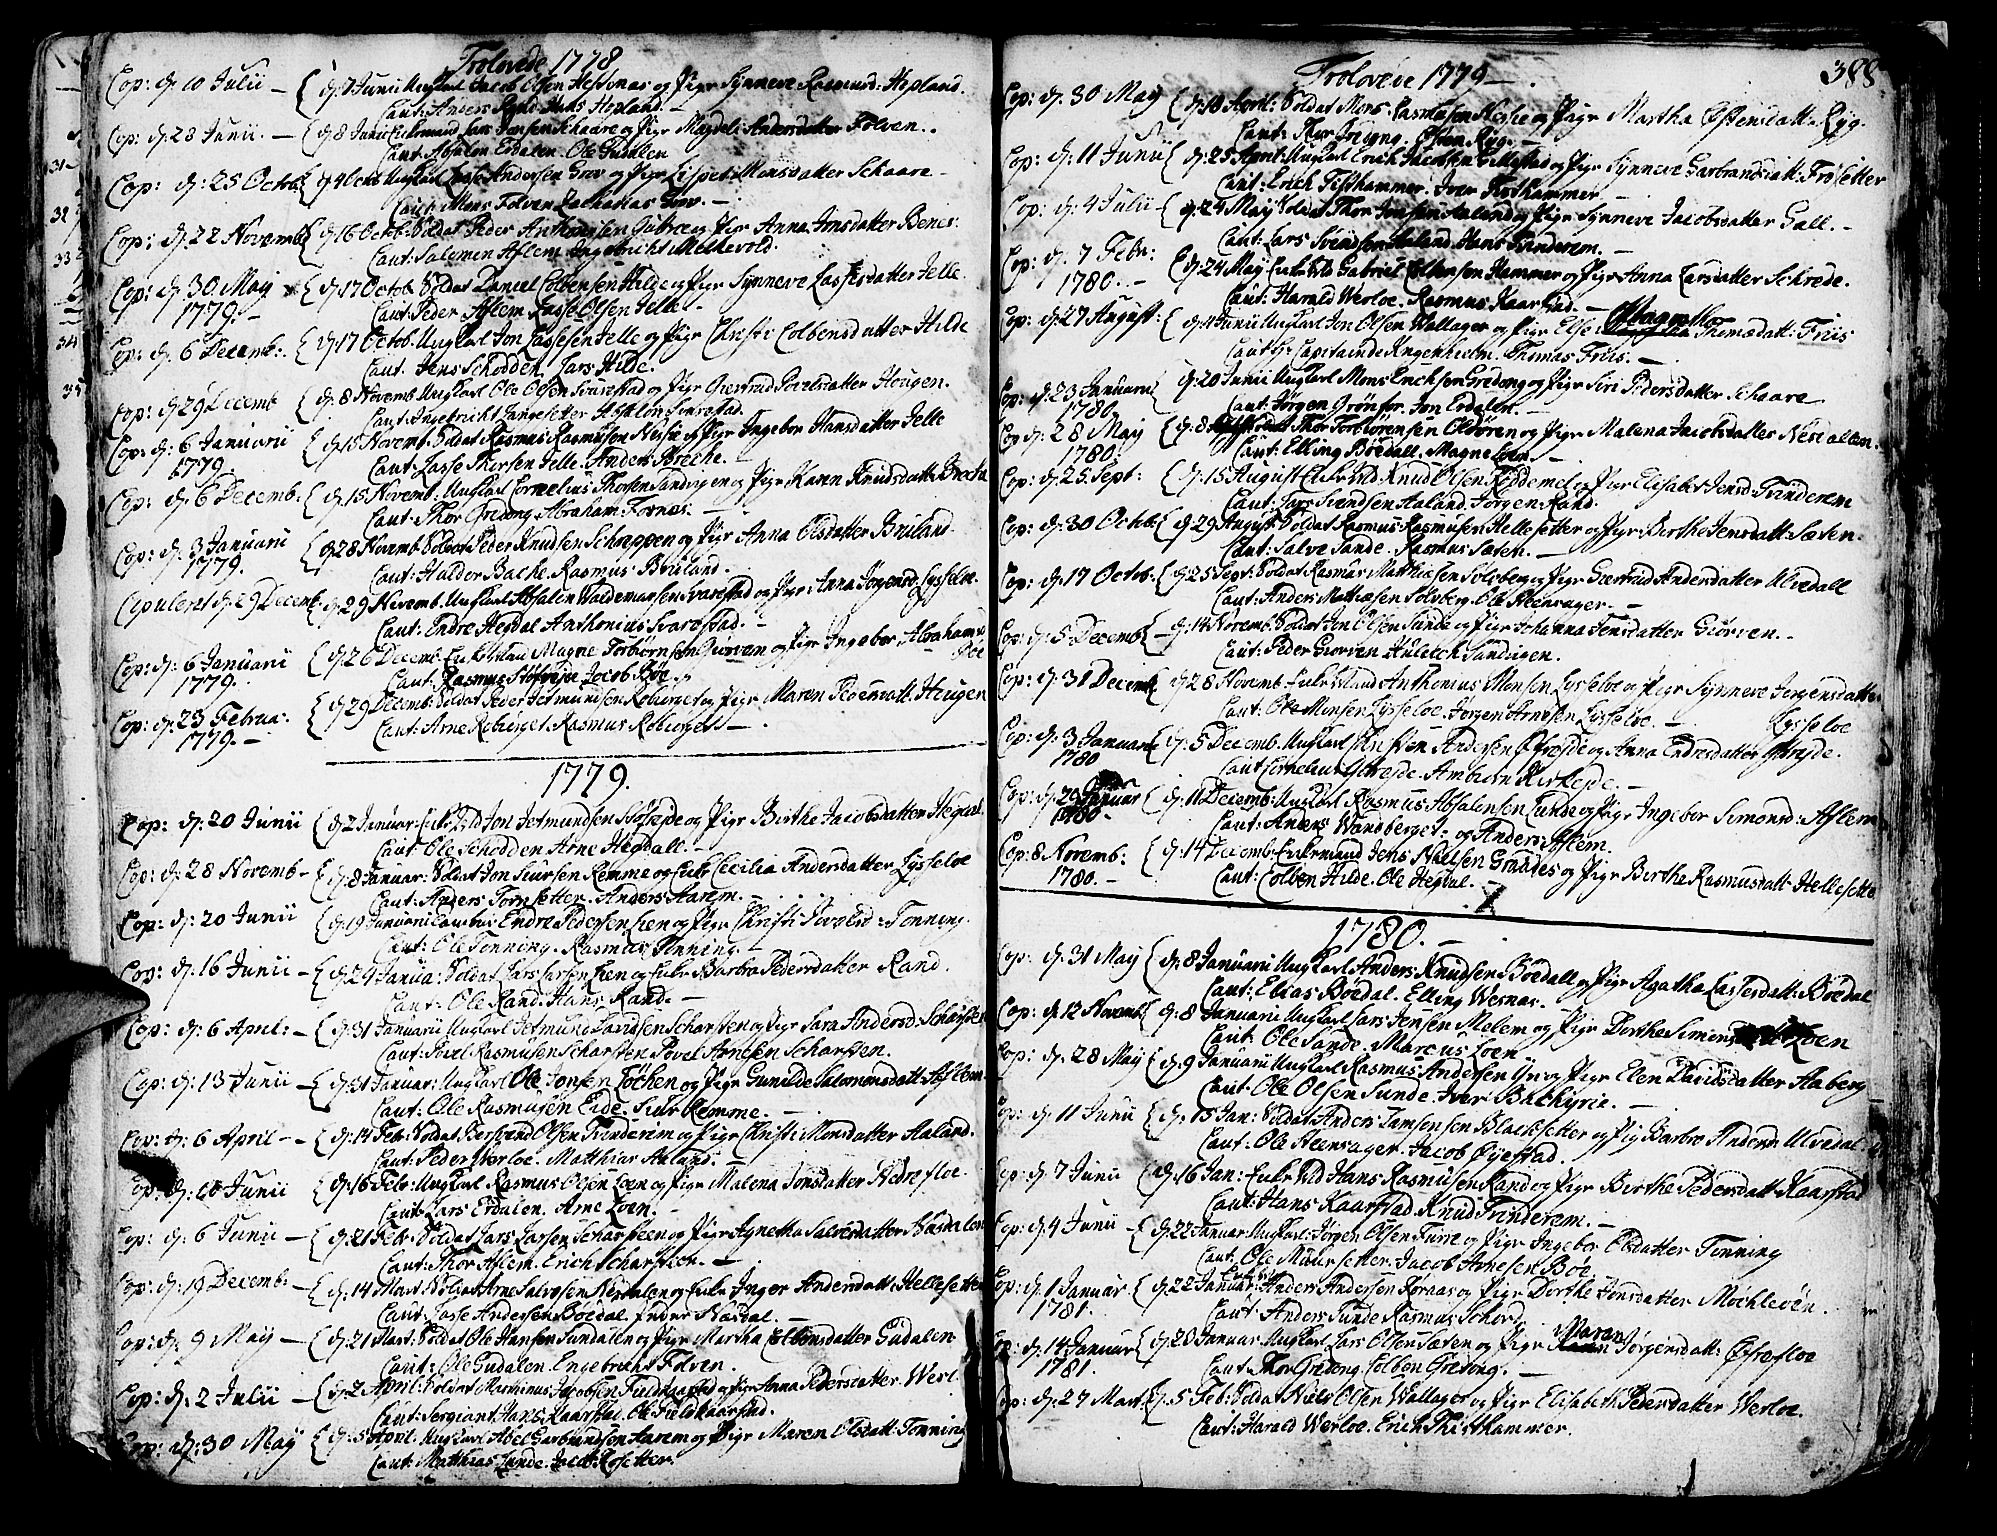 Trolovede 1778
Cop: d: 10 Julii — { d: 7 Junii Ungkarl Jacob Olsen Hessnas og Pige Synneve Rasmusd: Hopland.
Caut: Anders Rand Hans Hopland. —
Cop: d: 28 Junii. — { d: 8 Junii Enkemand Lars Jonsen Schaare og Pige Magdeli Andersdatter Folven..
Caut: Absalon Erdalen. Ole Gudalen
Cop: d: 25 Octob { d: 4 Octob Ungkarl Lasse Andersen Grov og Pige Lispet Monsdatter Schaare —
Caut: Mons Folven Zacharias Grov. —
Cop: d: 22 Novemb { d: 16 Octob: Soldat Peder Anthonsen og Pige Anna Arnsdatter Benes:
Caut: Salemon Aflem Ingebricht Melkevold.
Cop: d: 30 May { d: 17 Octob Soldat Daniel Colbensen Hilde og Pige Synneve Lassesdatter Jelle.
1779. — Caut: Peder Aflem Lasse Olsen Jelle. —
Cop: d: 6 Decemb: { d: 17 Octob. Ungkarl Jon Lassesen Jelle og Pige Christi Colbensdatter Hilde
Caut. Jens Schodden, Lars Hilde.
Cop: d: 29 Decemb { d: 8 Novemb Ungkarl Ole Olsen Svarstad og Pige Giertrud Povelsdatter Hougen.
Caut: Ingebricht Langesetter Absalon Svarstad.
Cop: d: 6 Januarii { d: 15 Novemb: Soldat Rasmus Rasmusen Nesie og Pige Ingebor Hansdatter Jelle
1779 Caut: Lasse Thorsen Jelle. Anders Breche. —
Cop: d: 6 Decemb. { d: 15 Novemb: Ungkarl Cornelius Thorsen Sandvigen og Pige Karen Knudsdatt: Breche
Caut: Thor Gredong Abraham Fornæs. —
Cop: d: 3 Januarii { d: 28 Novemb Soldat Peder Knudsen Schreppen og Pige Anna Olsdatter Bruland.
1779. Caut: Haldor Balke. Rasmus Bruland.
Copuleret d: 29 Decemb { d: 29 Novemb. Ungkarl Absalon Valdemarsen Svarestad og Pige: Anna Jørgensd: Lysseloe.
Caut: Endre Hegdal Anthonius Svarestad. —
Cop: d: 6 Januarii { d: 26 Decemb: Enkemand Magne Torbiørnsen Giorven og Pige Ingebor Abrahamsd
1779. Caut: Rasmus Jacob Bøe. Bøe
Cop: d: 23 Februa: { d: 29 Decemb: Soldat Peder Jetmundsen Roburget og Pige Maren Pedersdatt: Hougen
1779. — Caut: Arne Roburget. Rasmus Roburget —
1779.
Cop: d: 20 Junii { d: 2 Januar: Jon Jetmundsen og Pige Birthe Jacobsdatter Hegdal.
Caut Ole Schodden Arne Hegdall. —
Cop: d: 28 Novemb — { d: 8 Januar: Soldat Jon Siursen Remme og Enke Cecilia Andersdatter Lysseloe
Caut: Anders Tornsetter. Anders Aarem. —
Cop: d: 20 Junii { d: 19 Januarii Endre Pedersen Loen og Pige Christi Povelsd: Tonning.
Caut: Ole Tonning. Rasmus Tonning —
Cop: d: 16 Junii — { d: 24 Janua: Soldat Lars Larsen Loen og Enke Barbra Pedersdatter Rand.
Caut: Ole Rand. Hans Rand. —
Cop: d: 6 April: — { d: 31 Januarii Ungkarl Jetmund Davidsen Scharsten og Pige Sara Andersd: Scharsten
Caut: Povel Rasmusen Scharsten Povel Arnesen Scharsten.
Cop: d: 13 Junii — { d: 31 Januar: Ungkarl Ole Jonsen Tøchen og Pige Gunilde Salomonsdatt: Aflem.
Caut: Ole Rasmusen Eide. Siur Remme. —
Cop: d: 6 April — { d: 14 Feb: Soldat Bertrand Olsen Tvinderim og Pige Christi Monsdatter Aaland.
Caut: Peder Verloe. Matthias Aaland. —
Cop: d: 16 Junii { d: 16 Feb: Ungkarl Rasmus Olsen Loen og Pige Malena Jonsdatter Nedrefloe.
Caut: Lars Erdalen. Arne Loen. —
Cop: d: 6 Junii — { d: 21 Feb: Soldat Lars Larsen Scharsteen og Pige Agnetha Salvesdatter Nesdalen
Caut: Thor Aflem. Erich Scharsteen. —
Cop: d: 19 Decemb: — { d: 14 Mart: Soldat Arne Salvesen Nesdalen og Enke Inger Andersdatt: Hellesetter
Caut: Lasse Andersen Bøedal. Nesdal. —
Cop: d: 9 May — { d: 21 Mart: Soldat Ole Hansen Sundalen og Pige Martha Colbensdatter Gudalen
Caut: Ole Gudalen. Engebricht Folven.
Cop: d: 2 Julii — { d: 2 April: Soldat Mathias Jacobsen Fieldkaarstad og Pige Anna Pedersdatter Verl.
Caut: Sergiant Hans Kaarstad. Ole Fieldkaarstad.
Cop: d: 30 May { d: 5 April. Ungkarl Abel Garbrandsen Aarem og Pige Maren Olsdatt: Tonning
Caut: Matthias Lunde. Jacob Rosetter.
Trolovede 1779 — 388
Cop: d: 30 May { d: 18 April: Soldat Mons Rasmusen Nesie og Pige Martha Østensdatt: Ryg.
Caut: Thor Østen Ryg. —
Cop: d: 11 Junii { d: 25 April: Ungkarl Erich Jacobsen og Pige Synneve Garbrandsdatt: Frosetter
Caut: Erich Tisthammer. Iver Tisthammer —
Cop: d: 4 Julii — { d: 24 May Soldat Thor Jonsen Aaland og Pige Synneve Jacobsdatter Gall. —
Caut: Lars Svendsen Aaland. Hans Tvinderem. —
Cop: d: 7 Febr: { d: 24 May Gabriel Colbensen Hammer og Pige Anna Larsdatter Schrede.
1780. — Caut: Harald Verloe. Rasmus Kaarstad. —
Cop: d: 27 August: { d: 4 Junii Ungkarl Jon Olsen Wallager og Pige Else Magretha Thomsdatt: Friis
Caut: Hr: Capitain de Knagenhielm. Thomas Friis. —
Cop: d: 23 Januarii { d: 20 Junii Ungkarl Mons Erichsen Gredong og Pige Siri Pedersdatter Schaare
1780. Caut: Jørgen Grønfor. Jon Erdalen. —
Cop d: 28 May { d: 8 Thor Torbiørensen Oldøren og Pige Malena Jacobsdatter Nesdallen.
1780. Caut: Elling Bøedall, Magne Loen. —
Cop: d: 25 Sept: { d: 15 August Knud Olsen Roddemel og Pige Elisabet Jensd: Tvinderem
Caut: Lars Svendsen Aaland. Jørgen Rand.
Cop: d: 30 Octob: { d: 29 August: Soldat Rasmus Rasmusen Hellesetter og Pige: Berthe Jensdatt: Sæten.
Caut: Salve Sande. Rasmus Sæten. —
Cop: d: 17 Octob: { d: 25 Sept: Soldat Rasmus Mathiesen Solvberg og Pige Giertrud Andersdatter Ulvedall
Caut: Anders Mathiesen Solvberg. Ole Heensager. —
Cop: d: 5 Decemb { d: 14 Novemb: Soldat Jon Olsen Sunde og Pige Johanna Jensdatter Giørven.
Caut: Peder Giørven Sandvigen.
Cop: d: 31 Decemb { d: 28 Novemb. Enkemand Anthonius Monsen Lysseloe og Pige Synneve Jørgensdatter
Caut: Ole Monsen Lysseloe. Jørgen Arnesen Lysseloe. — Lysseloe
Cop: d: 3 Januari { d: 5 Decemb. Ungkarl Christen Andersen og Anna Endresdatter
1780 Caut Cornelius Ambiørn Kirkeide. —
Cop: d: 29 Januar { d: 11 Decemb: Ungkarl Rasmus Absalonsen Lunde og Pige Ingebor Simonsd: Aflem
1780. Caut: Anders Wandberget: og Anders Aflem.
Cop: 8 Novemb: { d: 14 Decemb: Enkemand Jens Nielsen Grandes og Pige Berthe Rasmusdatt: Hellesette
1780. — Caut: Colben Hilde. Ole Hegdal. —
1780. —
Cop: d: 31 May { d: 8 Januarii Ungkarl Anders Knudsen Bøedall og Pige Agatha Lassesdatt: Bøedal
Caut: Elias Bøedal. Elling Wesnas.
Cop: d: 12 Novemb { d: 8 Januarii Ungkarl Lars Jensen Melem og Pige Dorthe Simons Loen
Caut. Ole Sande. Marcus Loen
Cop: d: 28 May { d: 9 Januarii Ungkarl Rasmus Andersen Yri og Pige Elen Davidsdatter Aaberg
Caut: Ole Olsen Sunde. Iver —
Cop: d: 11 Junii { d: 15 Jan: Soldat Anders Samsonsen Blacksetter og Pig Barbro Andersd: Ulvedal
Caut: Ole Heensager. Jacob Øyestad.
Cop: d: 7 Junii { d: 16 Jan: Hans Rasmusen Rand og Pige Birthe Pedersdatt: Kaarstad
Caut: Hans Kaarstad. Knud Tvinderem. —
Cop: d: 4 Junii — { d: 22 Januar Ungkarl: Jørgen Olsen Furre og Pige Ingebor Olsdatter Tonning
Caut. Ole Muursetter. Jacob Arnesen Bøe
Cop: d: 1 Januar { d: 22 Januar: Anders Andersen og Pige Dorthe Jonsdatter Mochleven.
1781. Caut: Anders Sunde Rasmus Schord.
Cop: d: 14 Januar { d: 28 Januar Ungkarl Lars Olsen Sæten og Pige Maren Jørgensdatt: Øvrefloe
1781. Caut: Thor Gredong. Colben Gredong. —
Cop: d: 27 Mart { d: 5 Feb: Soldat Niels Olsen Wallager og Pige Elisabeth Pedersdatter Verloe.
Caut: Harald Werloe. Erich Thisthammer.